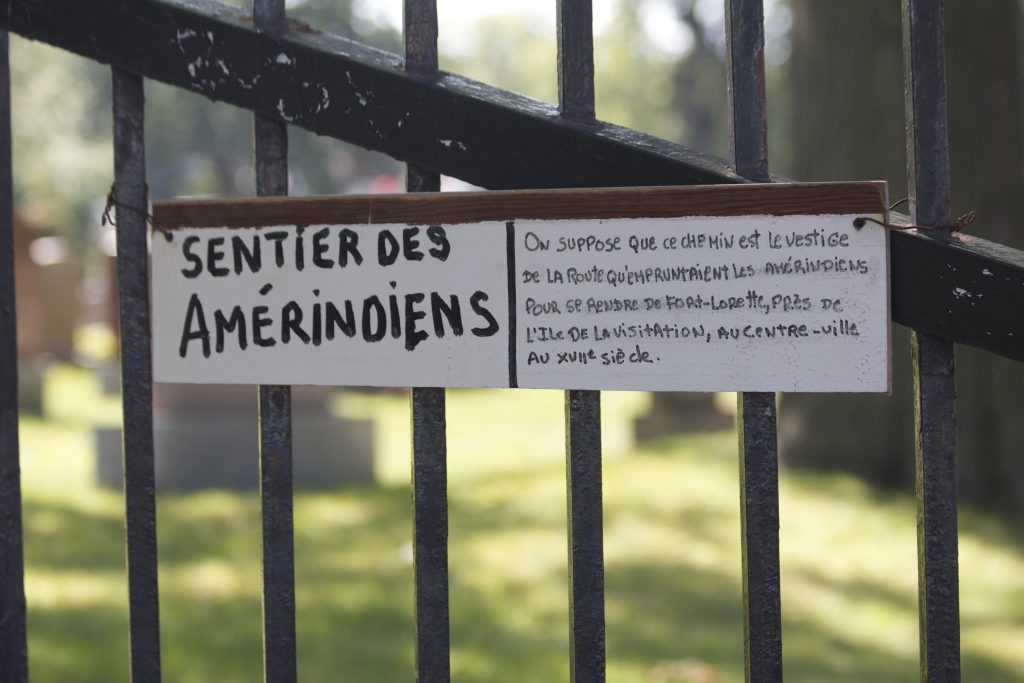 SENTIER DES
AMÉRINDIENS
ON SUPPOSE QUE CE CHEMIN EST LE VESTIGE
DE LA ROUTE QU'EMPRUNTAIENT LES AMÉRINDIENS
POUR SE RENDRE DE FORT-LORETTE, PRÈS DE
L'ILE DE LA VISITATION, AU CENTRE-VILLE
AU XVIIe SIÈCLE.